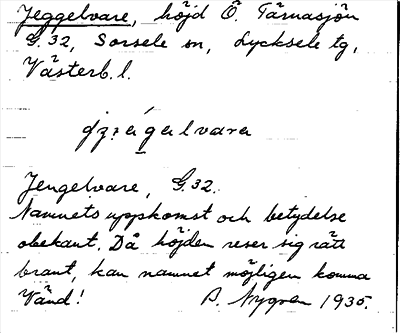 Jeggelvare, höjd Ö. Tärnasjön
G.32, Sorsele sn, Lycksele tg,
Västerb. l.
Jengelvare, G.32.
Namnets uppkomst och betydelse
obekant. Då höjden reser sig rätt
brant, kan namnet möjligen komma
Vänd! B. Nygren 1935.